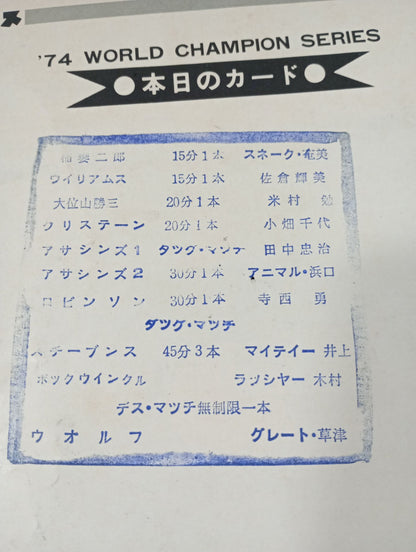 '74 WORLD CHAMPION SERIES
●本日のカード●
柿妻二郎 15分1本 スネーク・奄美
ウイリアムス 15分1本 佐倉輝美
大位山勝三 20分1本 米村 勉
クリステーン 20分1本 小畑千代
アサシンズ1 タツグ・マツチ 田中忠治
アサシンズ2 30分1本 アニマル・浜口
ロビンソン 30分1本 寺西 勇
タツグ・マツチ
スチーブンス 45分3本 マイテイー井上
ボックウインクル ラツシヤー木村
デス・マツチ無制限一本
ウオルフ グレート・草津